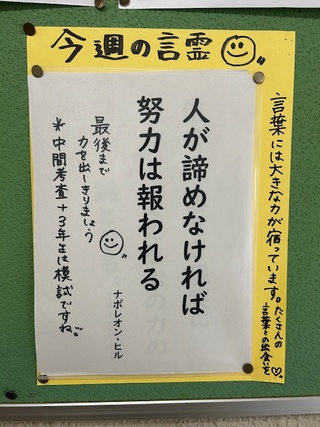 今週の言霊
言葉には大きな力が宿っています。たくさんの
言葉との出会いを♡
人が諦めなければ
努力は報われる
ナポレオン・ヒル
最後まで
力を出しきりましょう
*中間考査+3年生は模試ですね。